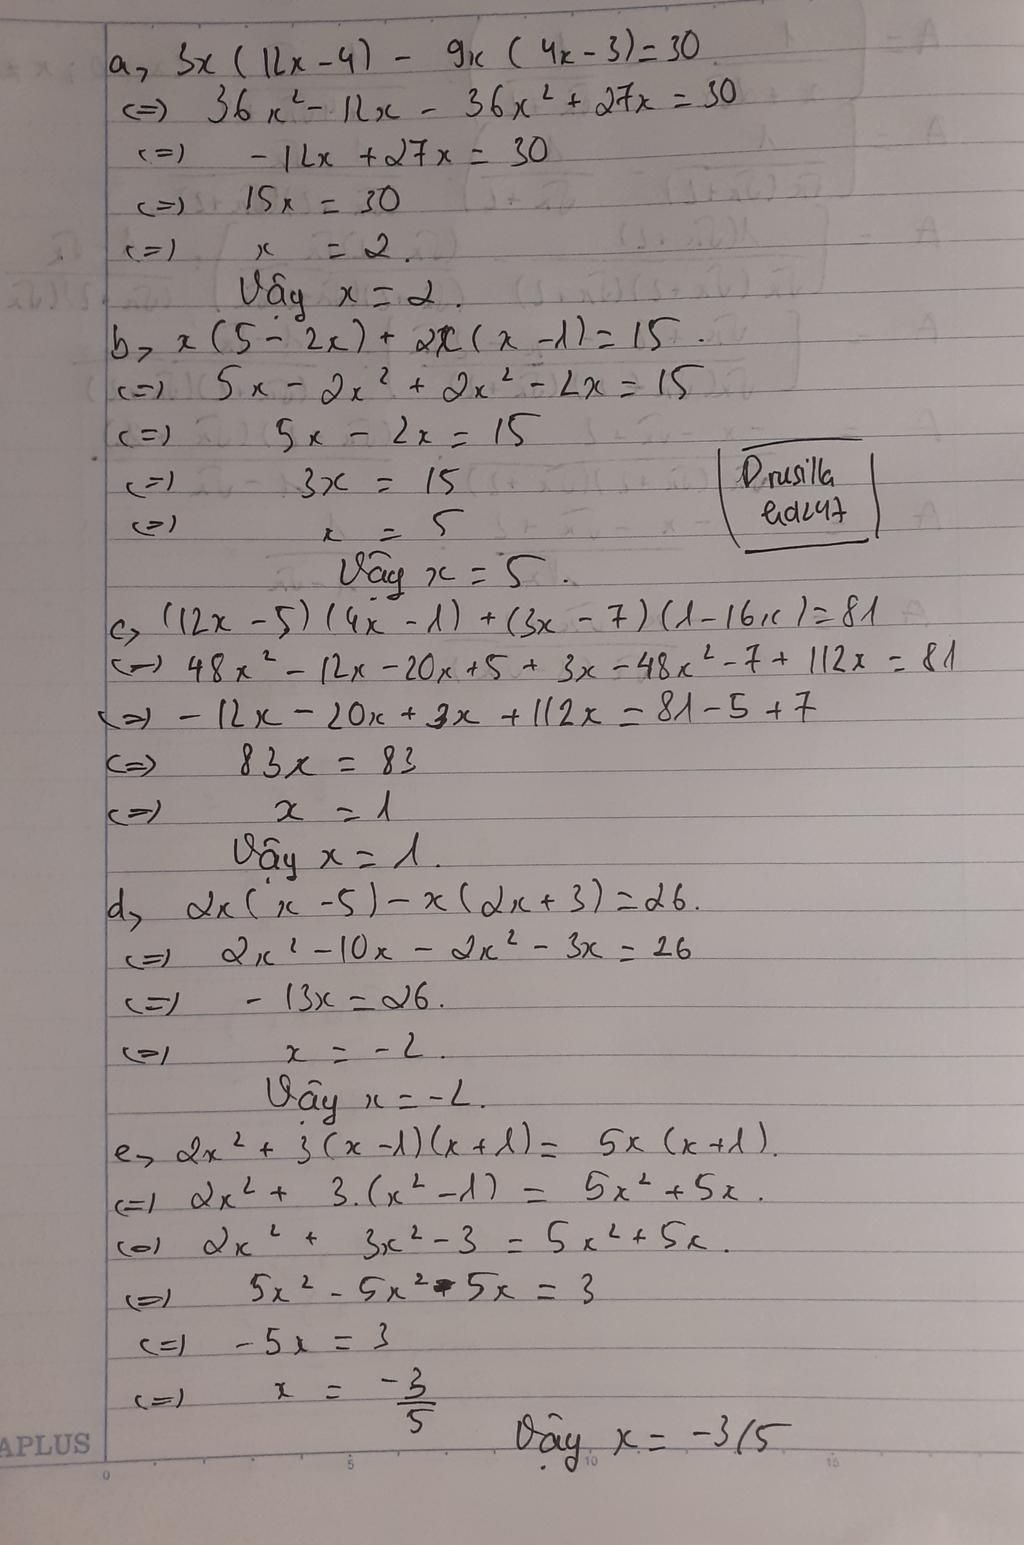 a, 3x (12x - 4) - 9x (4x - 3) = 30
<=> 36x² - 12x - 36x² + 27x = 30
<=> - 12x + 27x = 30
<=> 15x = 30
<=> x = 2.
Vậy x = 2.
b, x (5 - 2x) + 2x (x - 1) = 15.
<=> 5x - 2x² + 2x² - 2x = 15
<=> 5x - 2x = 15
<=> 3x = 15
<=> x = 5
Vậy x = 5.
Drusilla
c, (12x - 5) (4x - 1) + (3x - 7) (1 - 16x) = 81
<=> 48x² - 12x - 20x + 5 + 3x - 48x² - 7 + 112x = 81
<=> - 12x - 20x + 3x + 112x = 81 - 5 + 7
<=> 83x = 83
<=> x = 1
Vậy x = 1.
d, 2x (x - 5) - x (2x + 3) = 26.
<=> 2x² - 10x - 2x² - 3x = 26
<=> - 13x = 26.
<=> x = - 2.
Vậy x = - 2.
e, 2x² + 3 (x - 1) (x + 1) = 5x (x + 1).
<=> 2x² + 3. (x² - 1) = 5x² + 5x.
<=> 2x² + 3x² - 3 = 5x² + 5x.
<=> 5x² - 5x² - 5x = 3
<=> - 5x = 3
<=> x = -3/5
Vậy x = -3/5
APLUS
0 5 10 15